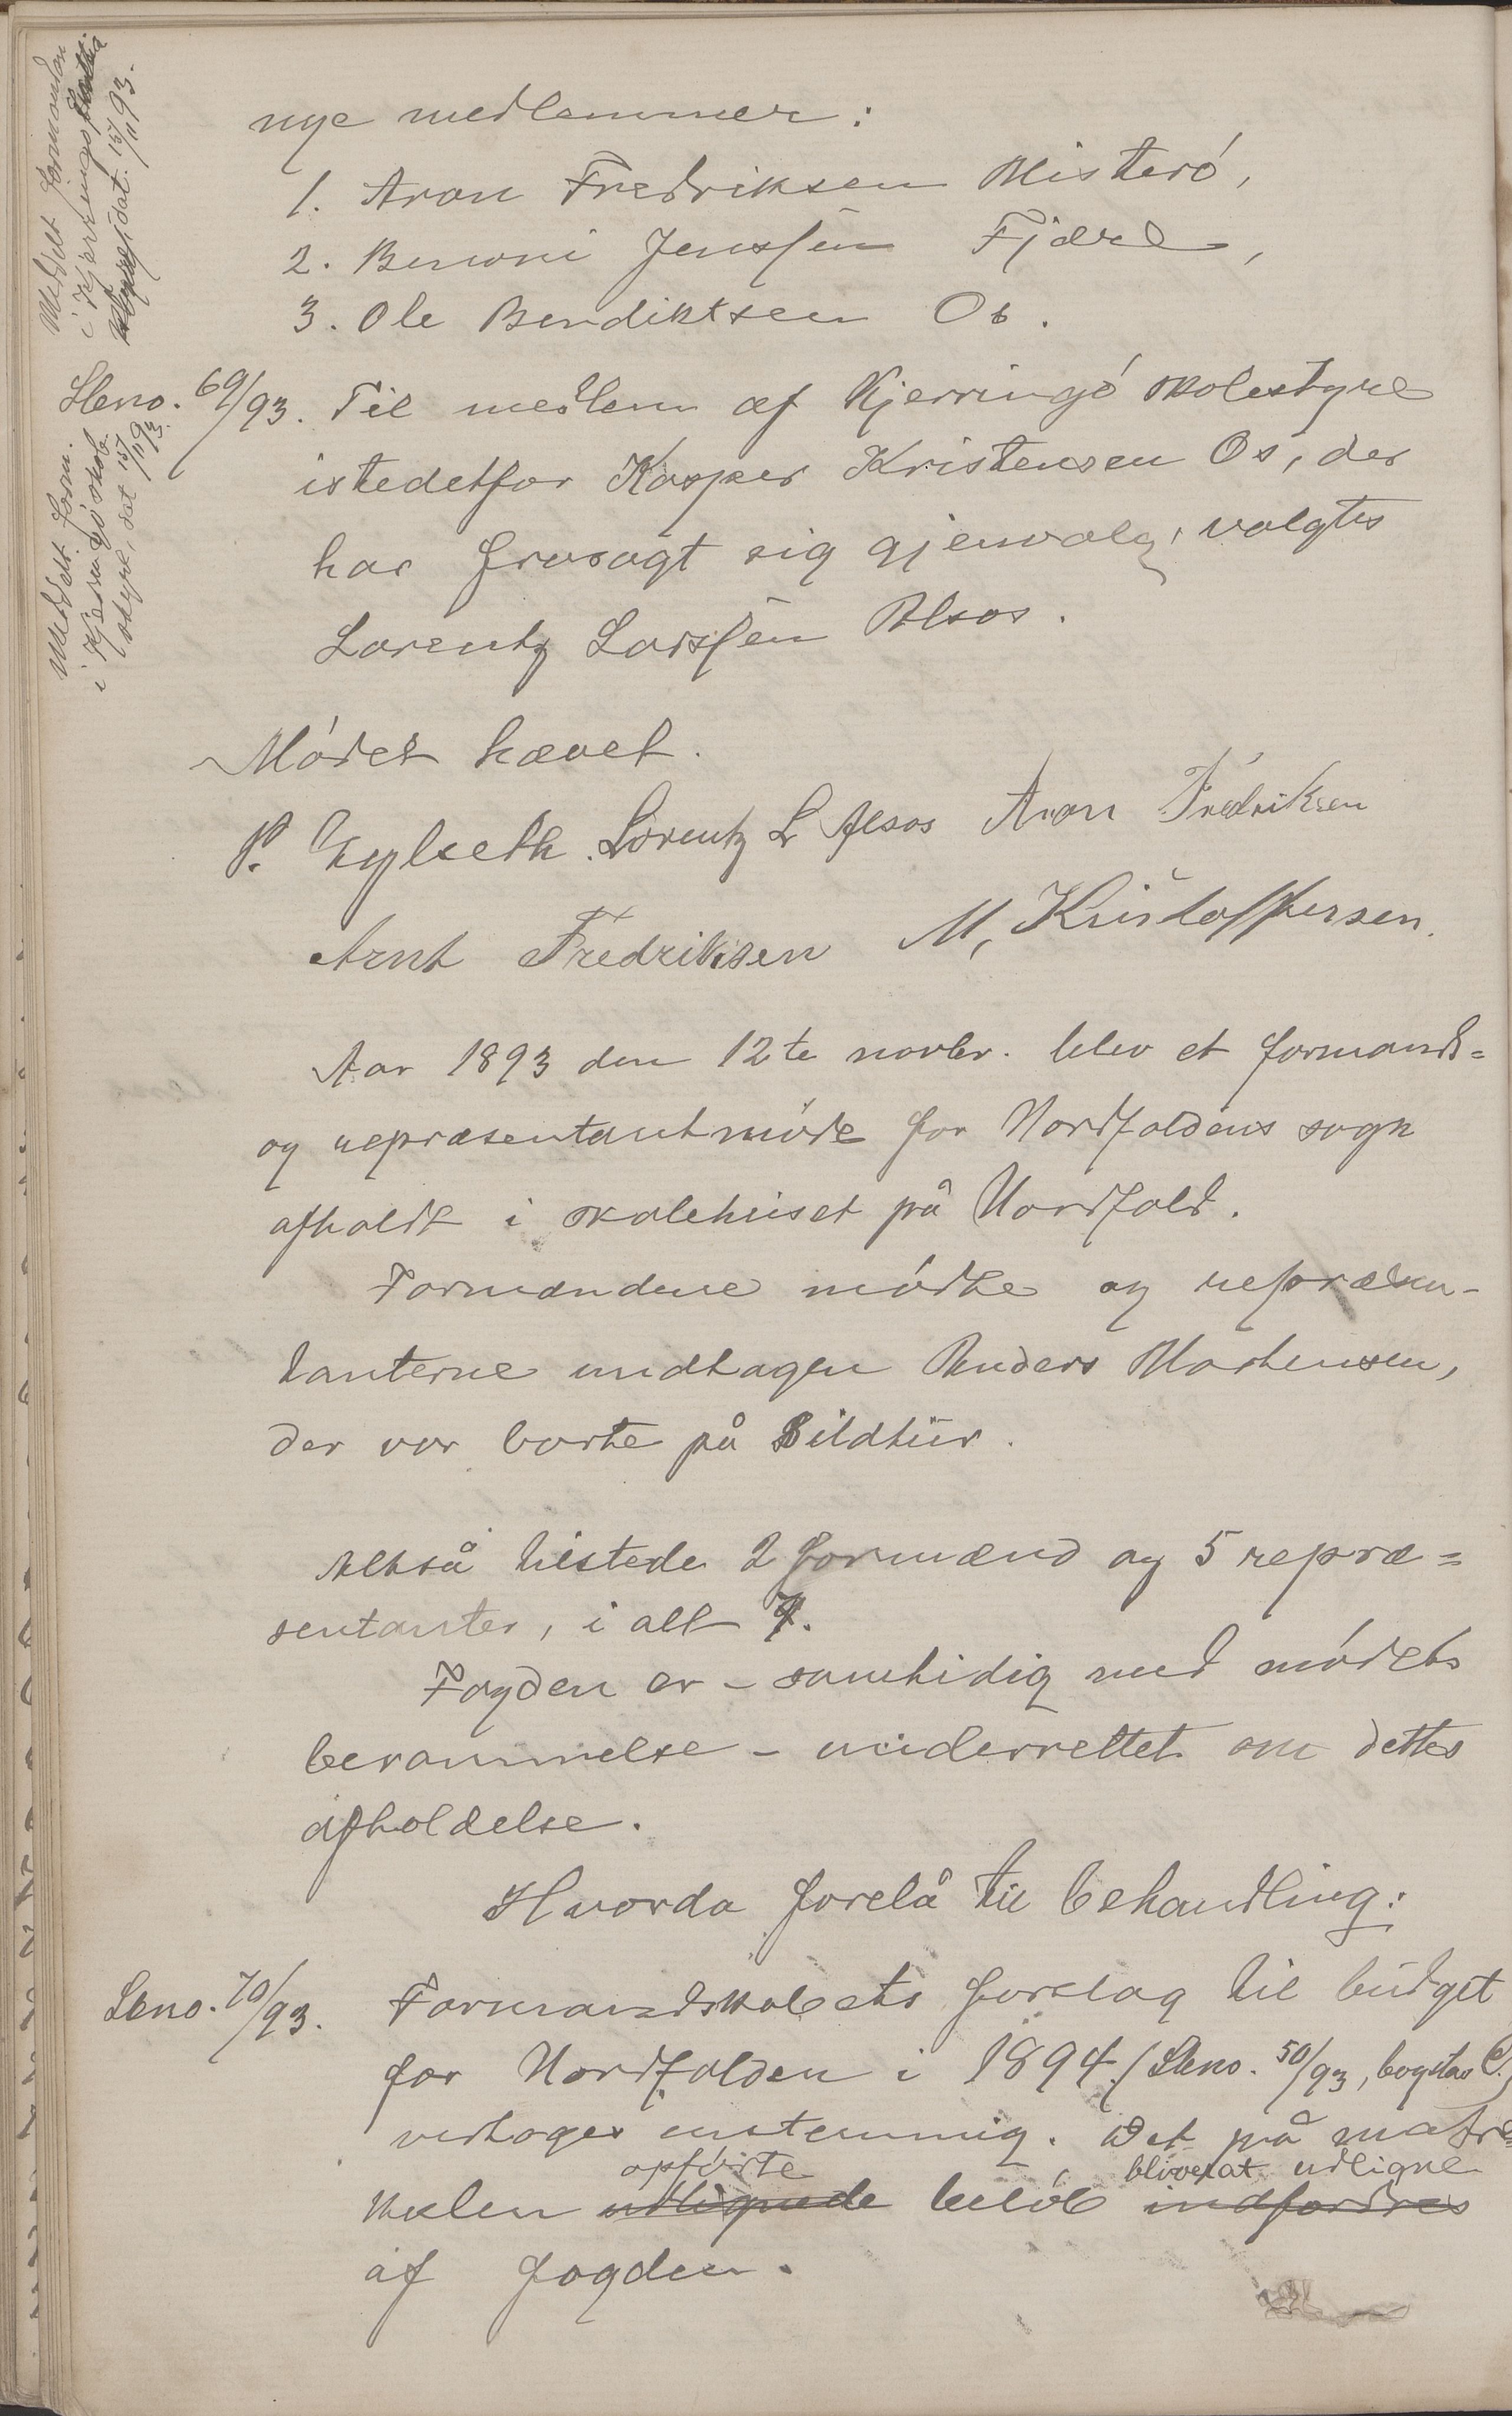 Meddelt formanden
i Kjerringø
dat. 15/11 93.
nye medlemmer:
1. Aron Fredriksen Misterø,
2. Benoni Jenssen Fjære,
3. Ole Bendiktsen Os.
Sleno. 69/93. Til medlem af Kjerringø skolestyre
istedetfor Kasper Kristensen Os, der
har frasagt sig gjenvalg, valgtes
Lorentz Larssen Alsos.
Meddelt form.
i Kjerringø skole
styre, dat 15/11 93.
Mødet hævet.
P. Gylseth. Lorentz L Alsos Aron Fredriksen
Arnt Fredriksen M, Kristoffersen.
Aar 1893 den 12te novbr. blev et formands=
og repræsentantmøde for Nordfoldens sogn
afholdt i skolehuset på Nordfold.
Formændene mødte og repræsen-
tanterne undtagen Anders Mortensen,
der var borte på Sildtur.
Altså tilstede 2 formænd og 5 repræ=
sentanter, i alt 7.
Fogden er - samtidig med mødets
berammelse - underrettet om dettes
afholdelse.
Hvorda forelå til behandling:
Sleno. 70/93. Formandskabets forslag til budget
for Nordfolden i 1894 (Sleno. 50/93, bogstav C.)
vedtoges enstemmig. Det på matri=
opførte bliver at udligne
kulen udlignede beløb indfordres
af fogden.